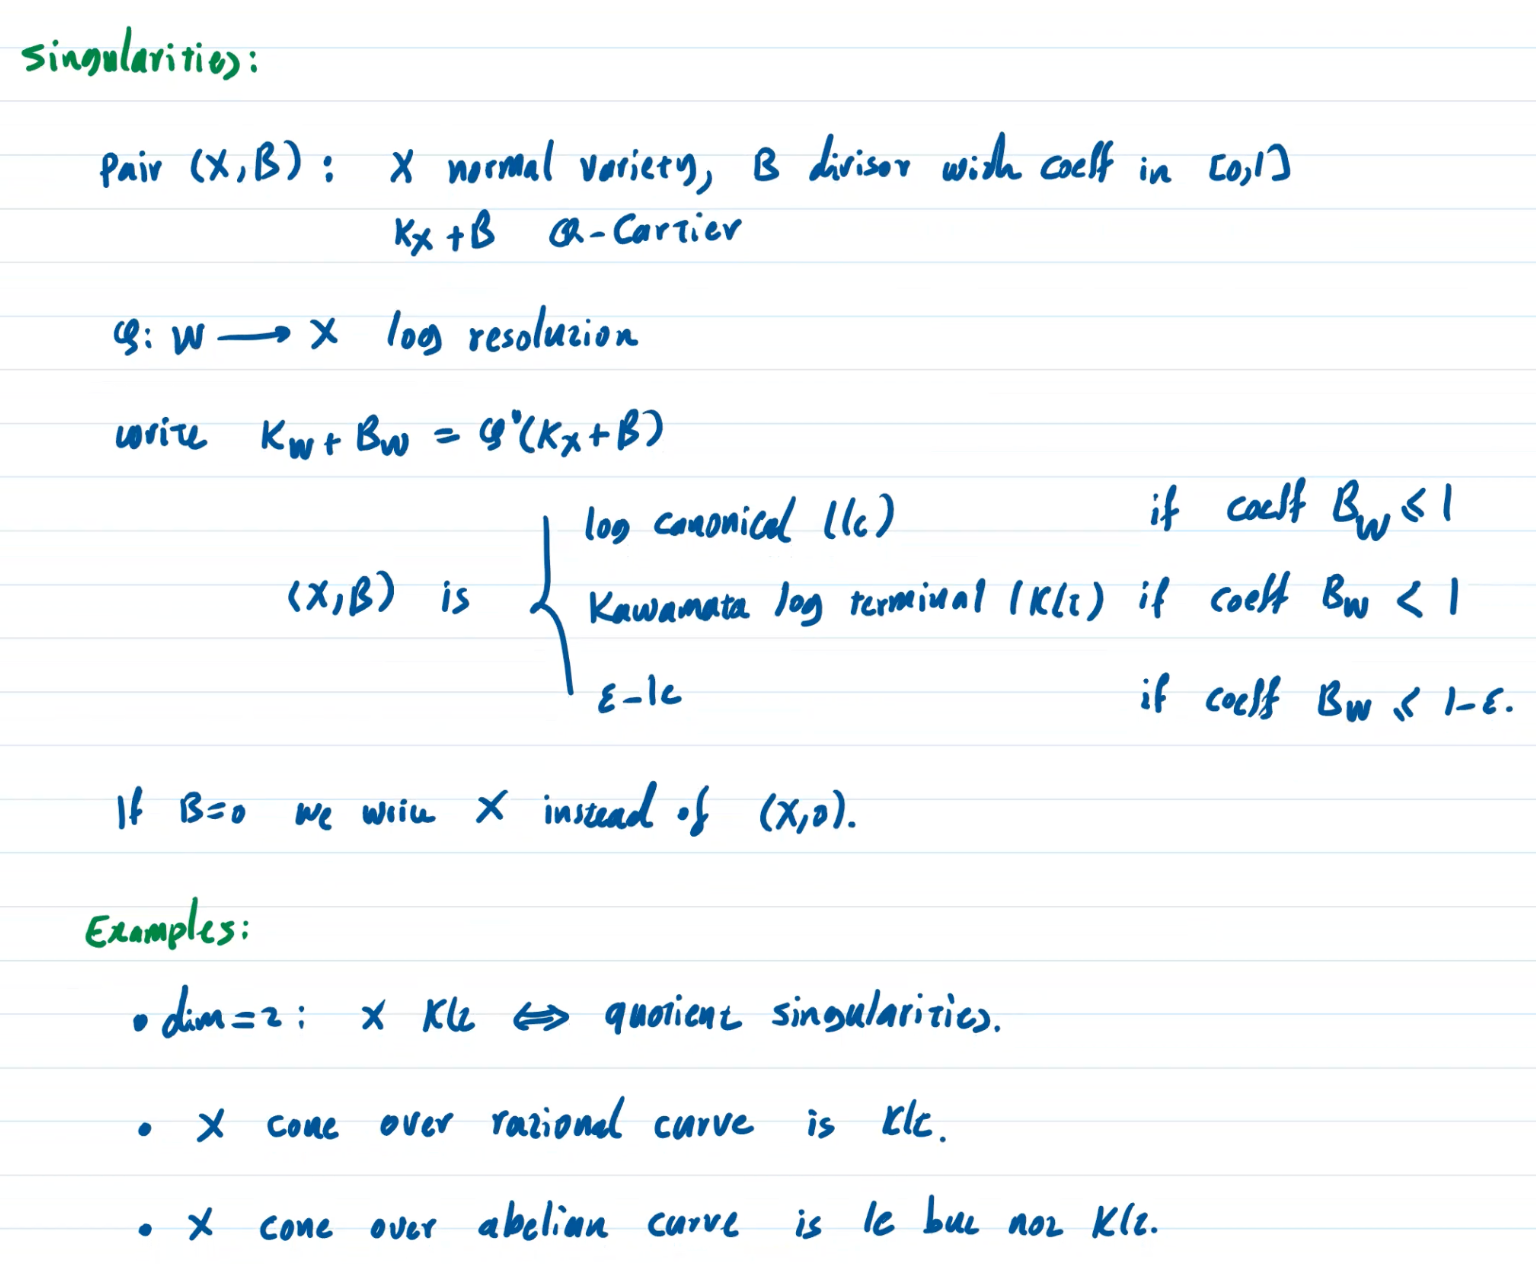 Singularities:
Pair (X,B): X normal variety, B divisor with coeff in [0,1]
K_X + B Q-Cartier
φ: W ⟶ X log resolution
write K_W + B_W = φ*(K_X + B)
log canonical (lc) if coeff B_W ≤ 1
(X,B) is { Kawamata log terminal (klt) if coeff B_W < 1
ε-lc if coeff B_W ≤ 1-ε.
If B=0 we write X instead of (X,0).
Examples:
• dim=2: X klt ⟺ quotient singularities.
• X cone over rational curve is klt.
• X cone over abelian curve is lc but not klt.